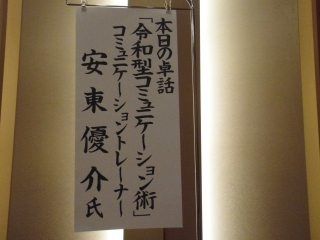 本日の卓話
「令和型コミュニケーション術」
コミュニケーショントレーナー
安東優介氏